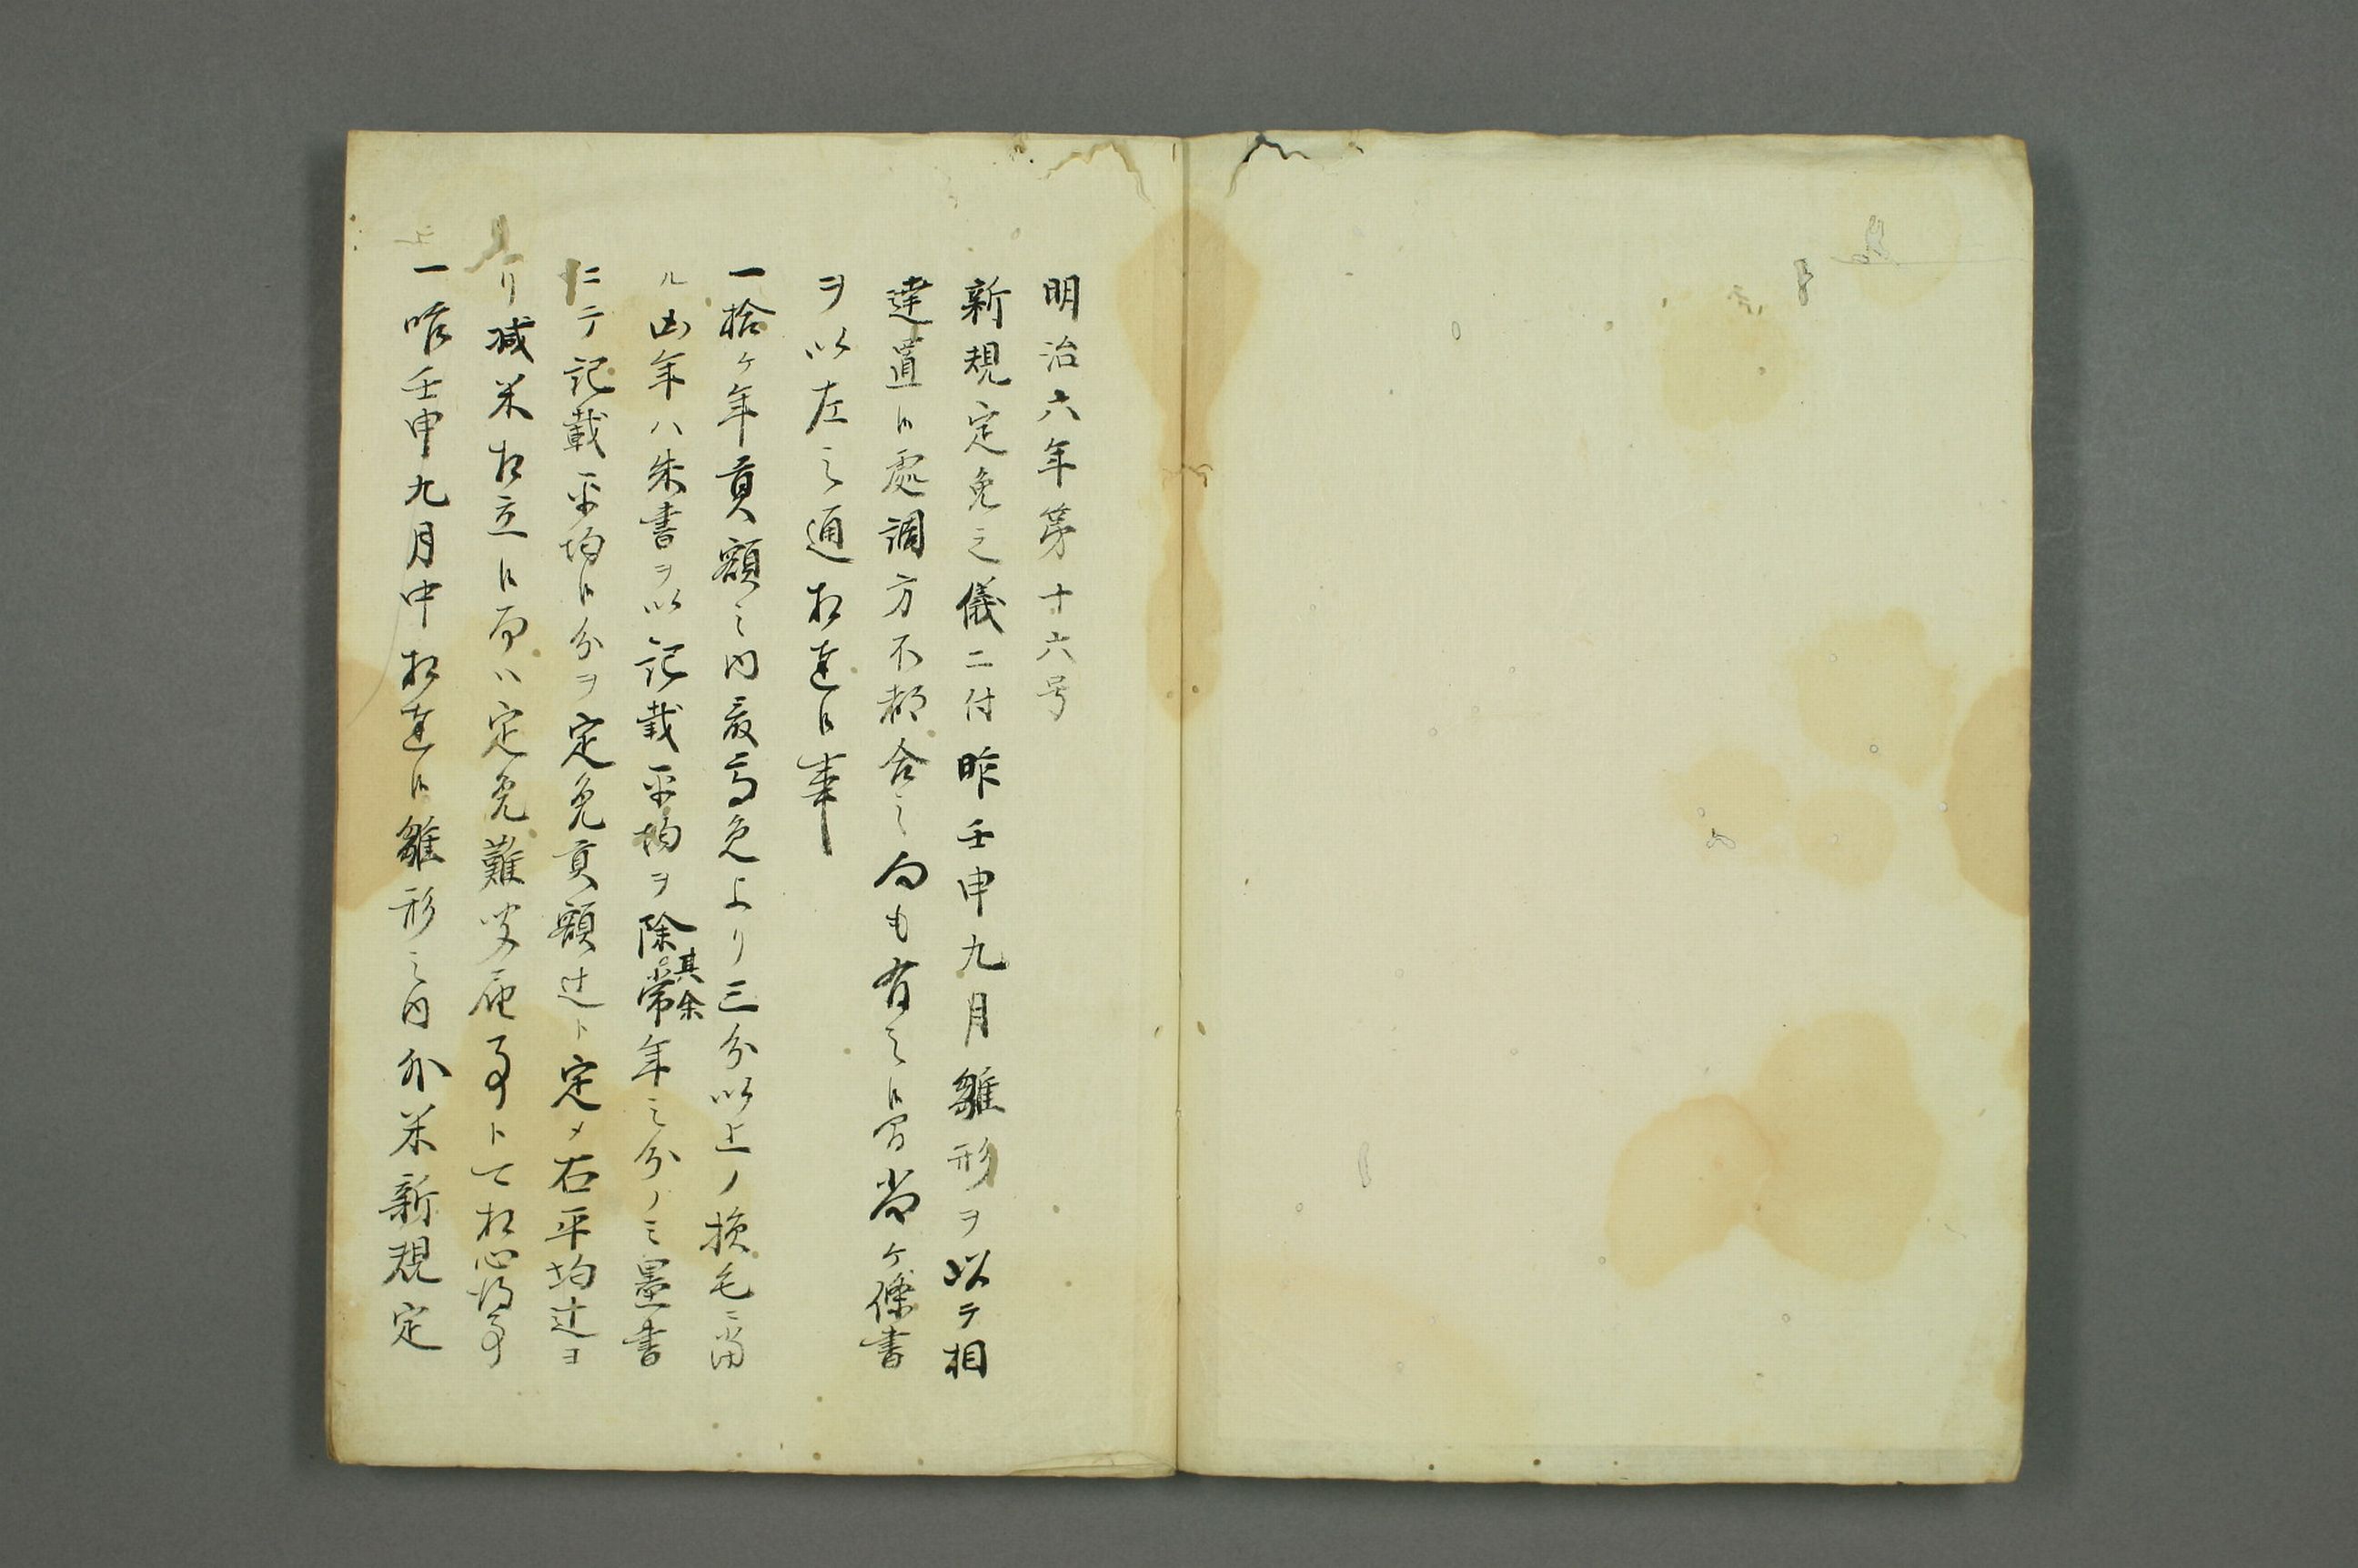 明治六年第十六号
新規定免之儀ニ付昨壬申九月雛形ヲ以テ相
達置候處調方不都合之向も有之候間尚ケ條書
ヲ以左之通相達候事
一拾ケ年貢額之内最高免より三分以上ノ損毛ニ當
ル凶年ハ朱書ヲ以記載平均ヲ除其余常年之分ノミ墨書
ニテ記載平均候分ヲ定免貢額辻ト定メ右平均辻ヨ
リ減米相立候而ハ定免難聞届事ト相心得事
一昨壬申九月中相達候雛形之内外米新規定